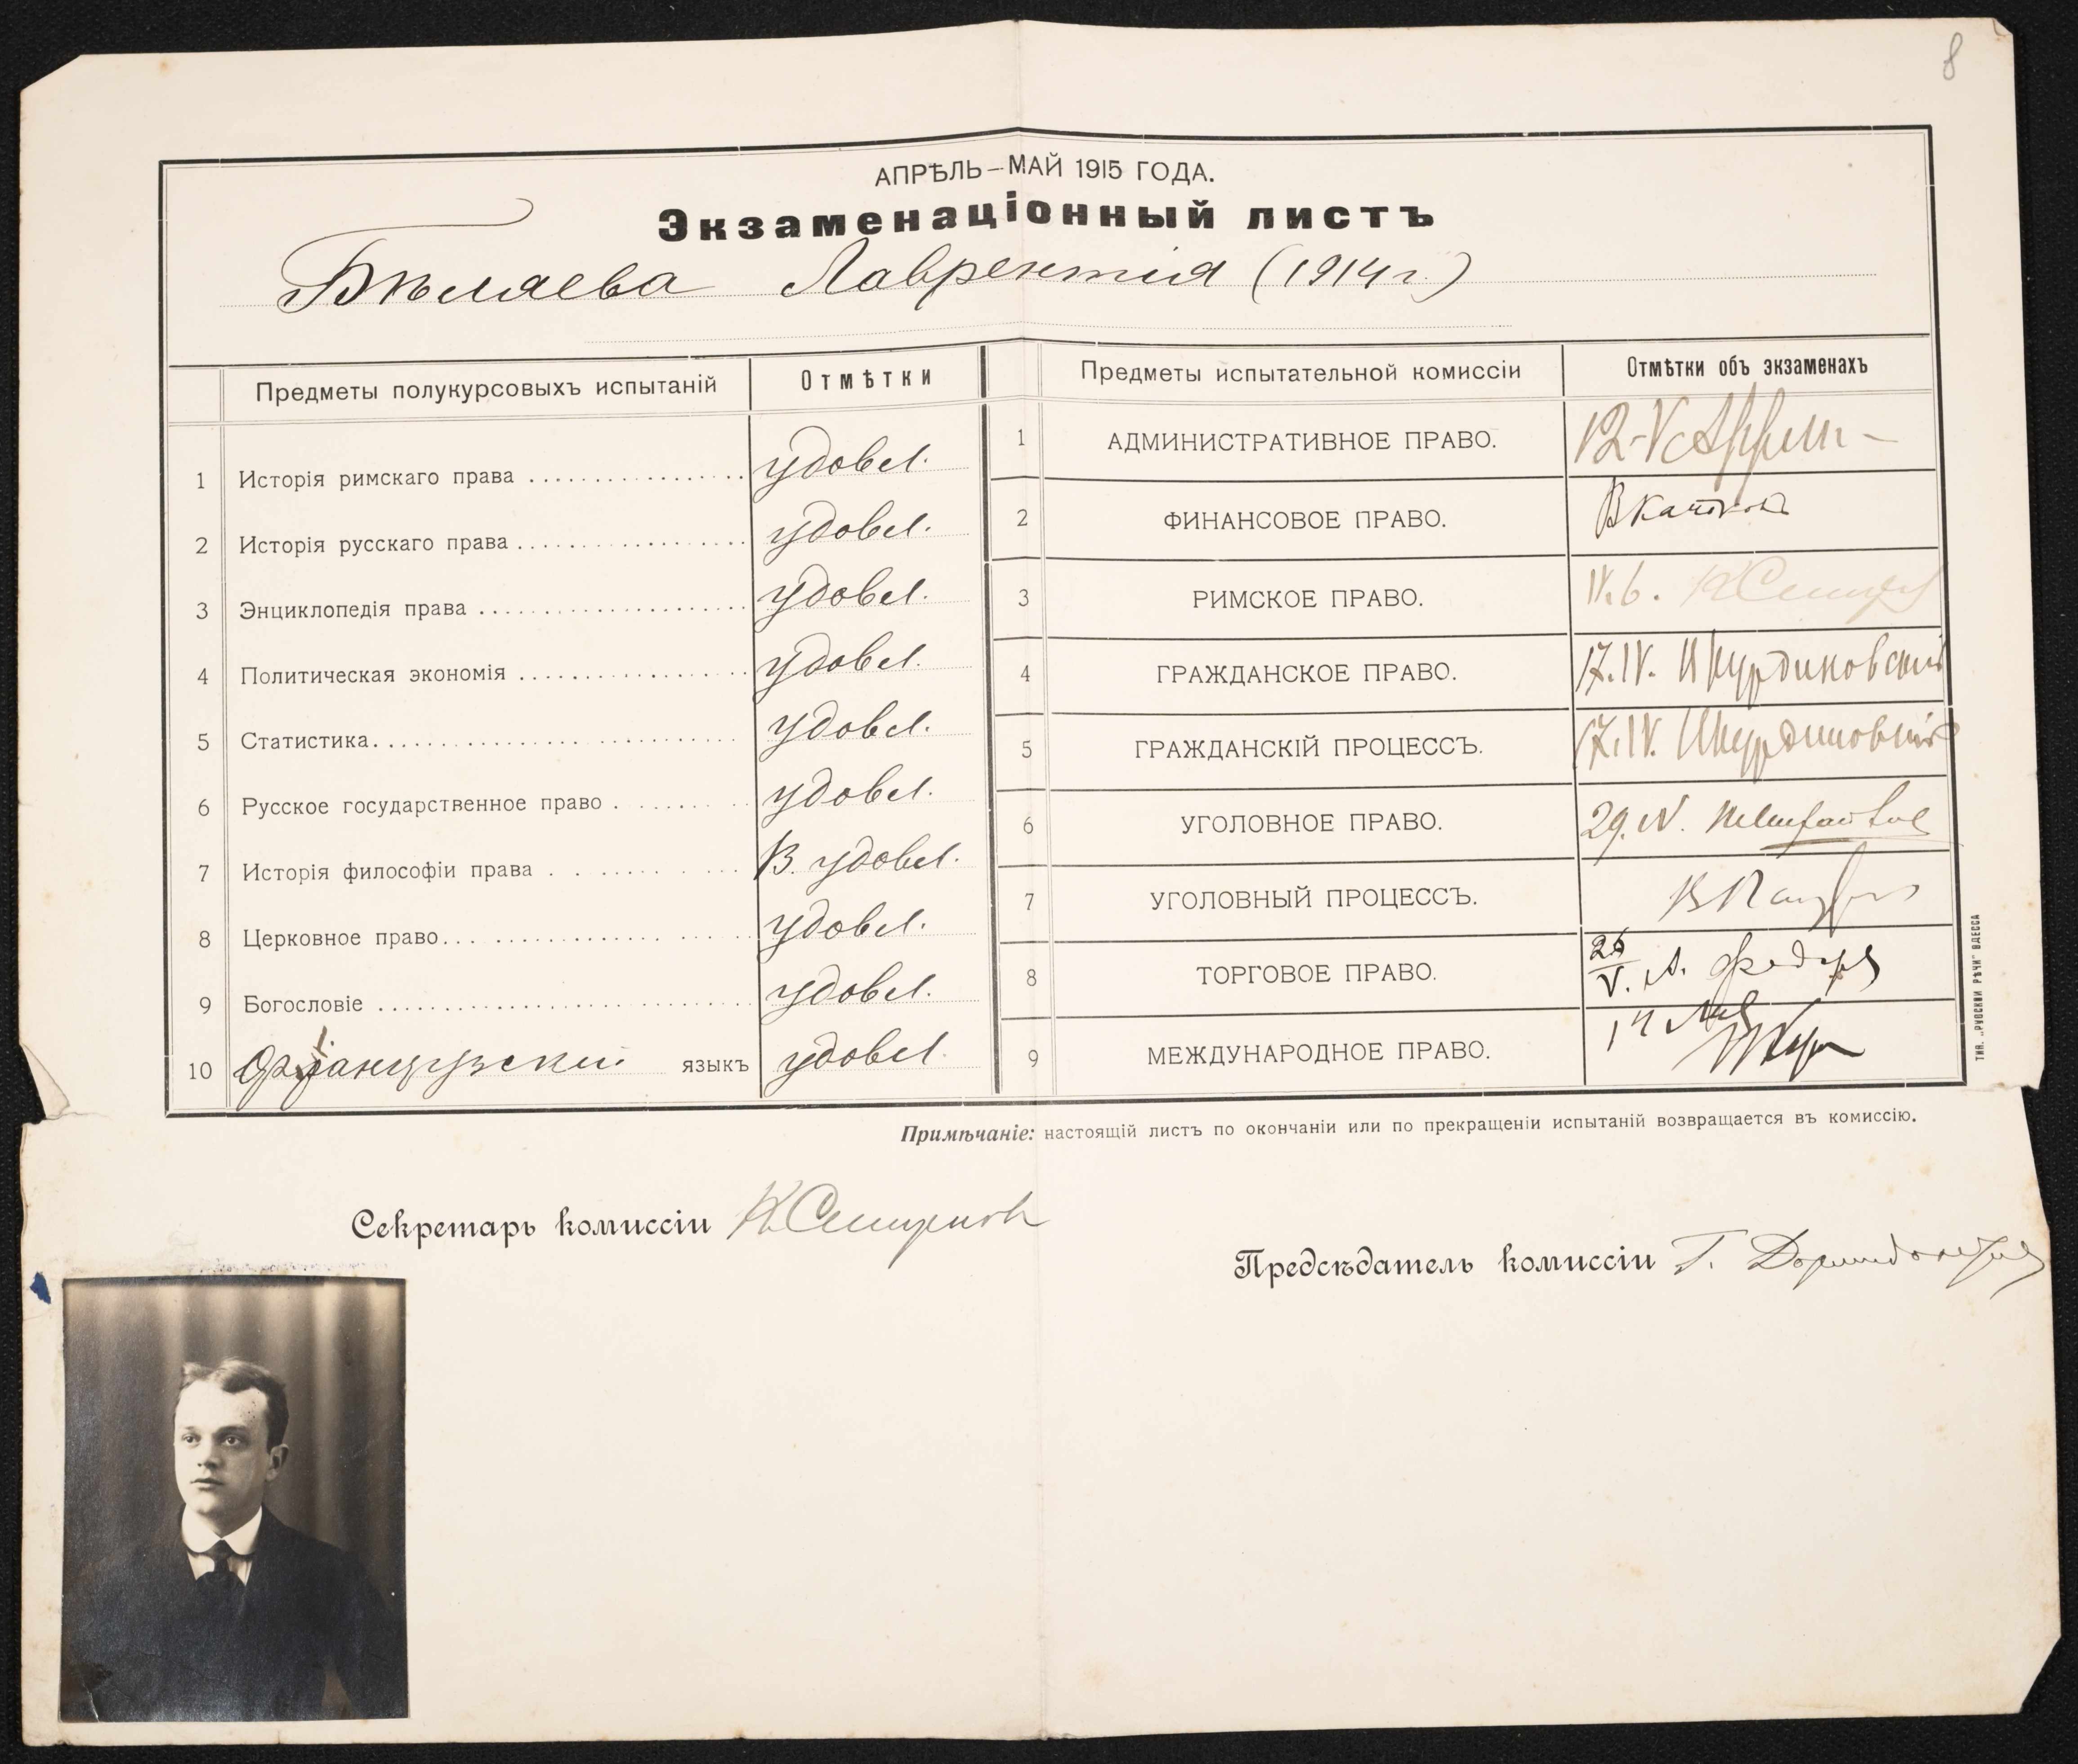 8
АПРѢЛЬ–МАЙ 1915 ГОДА.
Экзаменаціонный листъ
Бѣляева Лаврентія (1914 г.)
Предметы полукурсовыхъ испытаній Отмѣтки
1 Исторія римскаго права удовл.
2 Исторія русскаго права удовл.
3 Энциклопедія права удовл.
4 Политическая экономія удовл.
5 Статистика удовл.
6 Русское государственное право удовл.
7 Исторія философіи права В. удовл.
8 Церковное право удовл.
9 Богословіе удовл.
10 Французскій языкъ удовл.
Предметы испытательной комиссіи Отмѣтки объ экзаменахъ
1 АДМИНИСТРАТИВНОЕ ПРАВО. 12-V
2 ФИНАНСОВОЕ ПРАВО.
3 РИМСКОЕ ПРАВО. IV.6. К Смирнов
4 ГРАЖДАНСКОЕ ПРАВО. 17.IV.
5 ГРАЖДАНСКІЙ ПРОЦЕССЪ. 17.IV.
6 УГОЛОВНОЕ ПРАВО. 29.IV.
7 УГОЛОВНЫЙ ПРОЦЕССЪ.
8 ТОРГОВОЕ ПРАВО. V. А. Федоров
9 МЕЖДУНАРОДНОЕ ПРАВО.
Примѣчаніе: настоящій листъ по окончаніи или по прекращеніи испытаній возвращается въ комиссію.
ТИП. „РУССКОЙ РѢЧИ" ОДЕССА
Секретарь комиссіи К Смирнов
Предсѣдатель комиссіи Г.